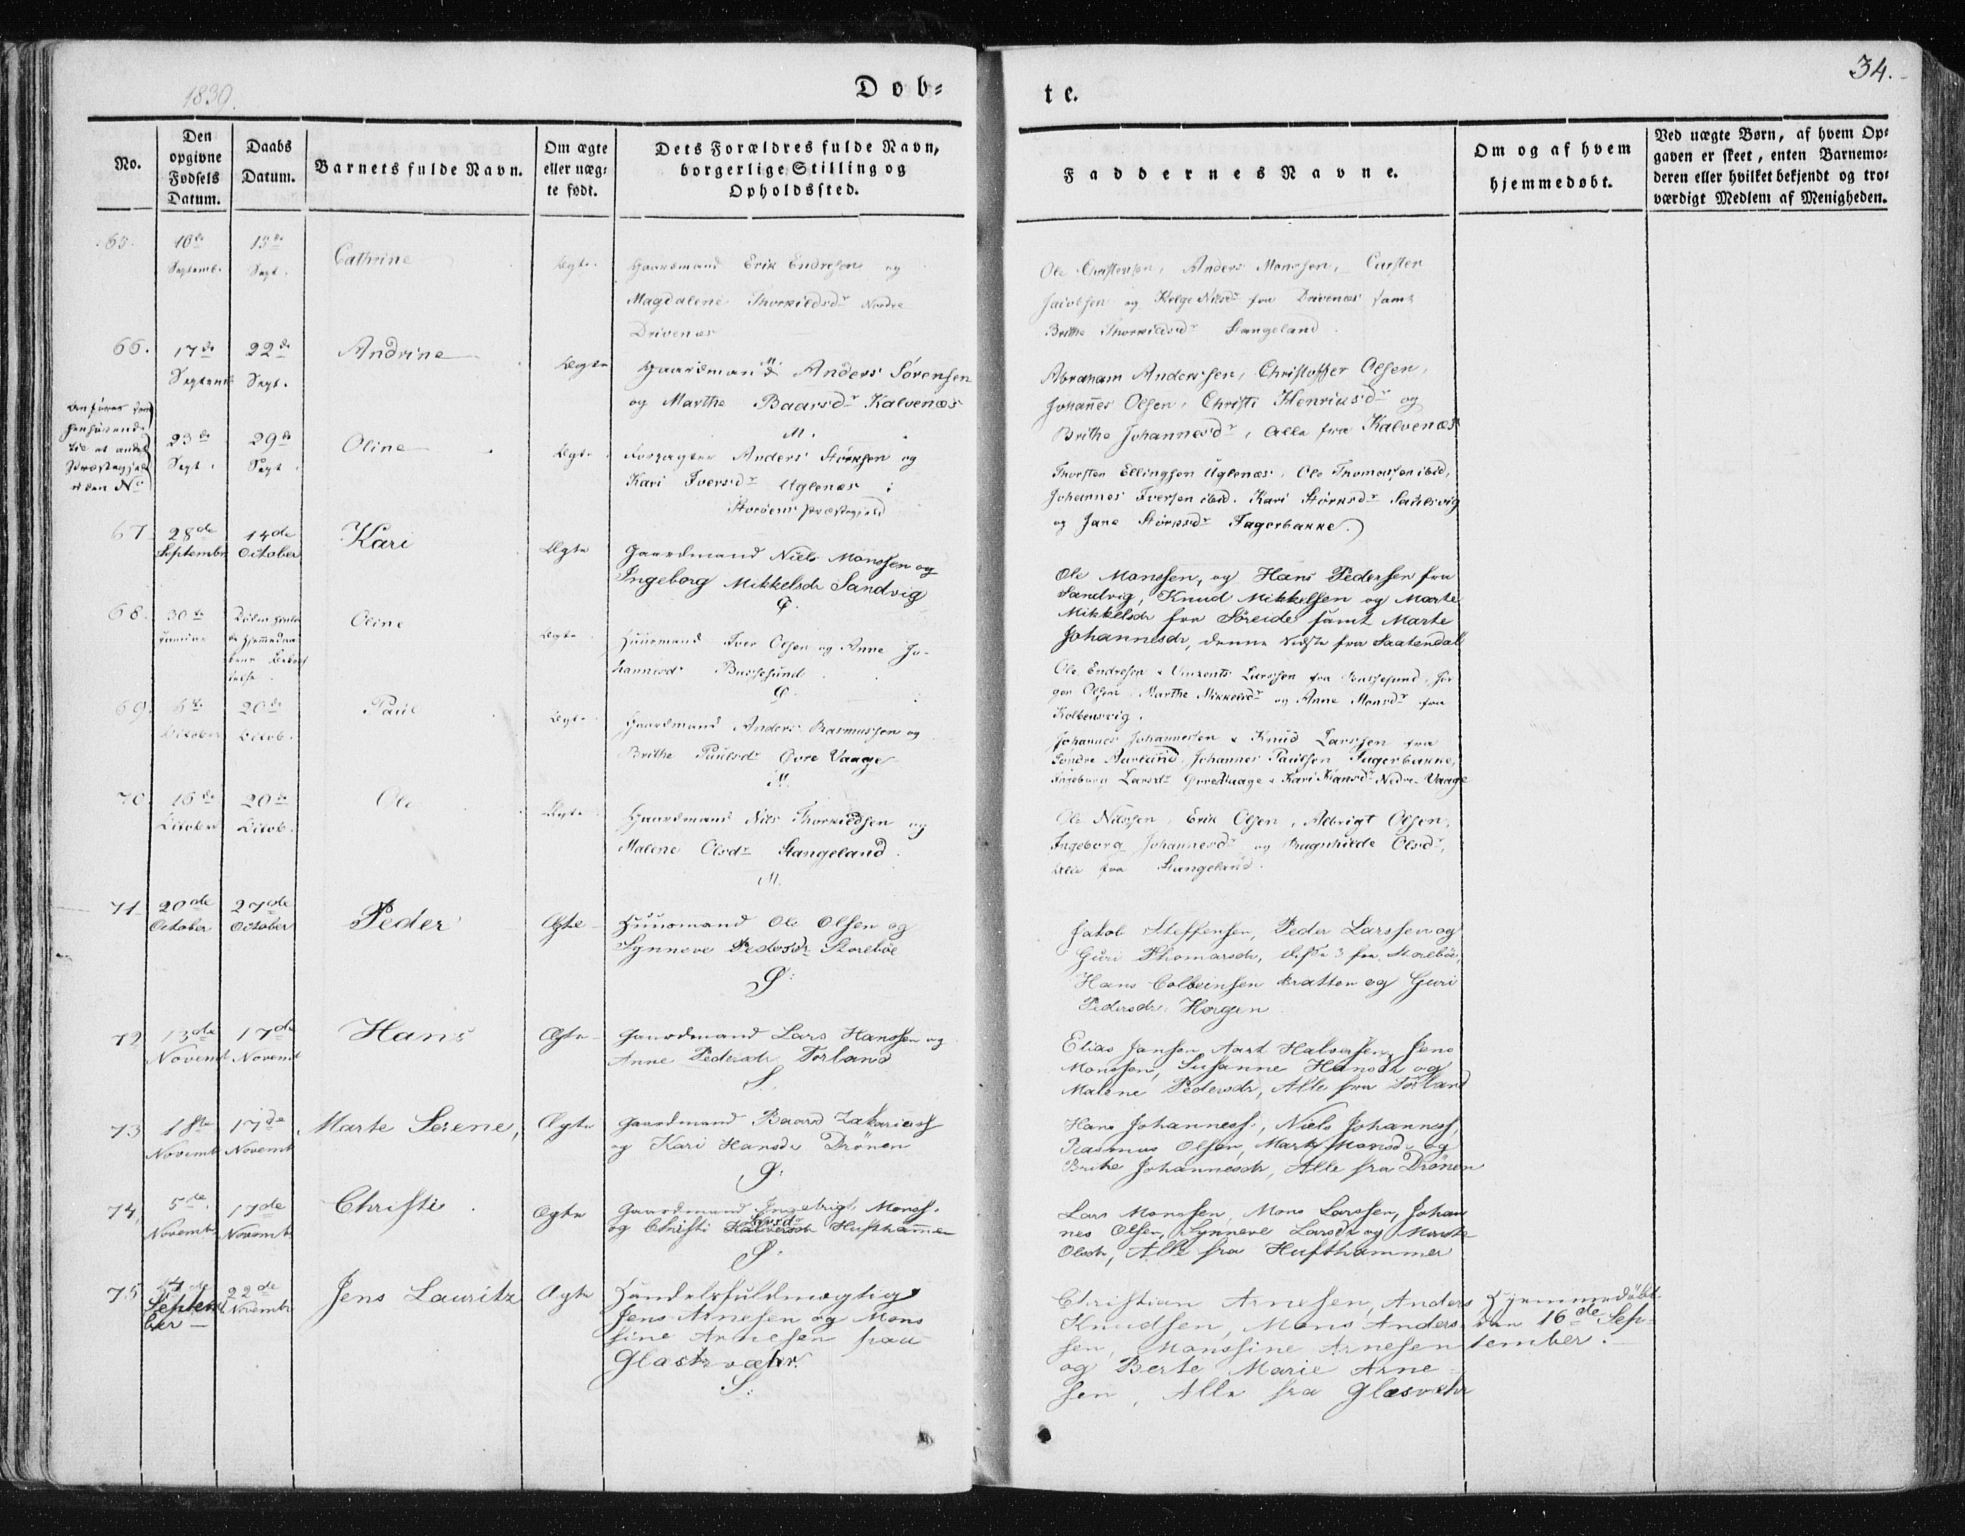 34.
1839.
Døb-
te.
No.
Den
opgivne
Fødsels
Datum.
Daabs
Datum.
Barnets fulde Navn.
Om ægte
eller uæg-
te født.
Dets Forældres fulde Navn,
borgerlige Stilling og
Opholdssted.
Faddernes Navne.
Om og af hvem
hjemmedøbt.
Ved uægte Børn, af hvem Op-
gaven er skeet, enten Barnemo-
deren eller hvilket bekjendt og tro-
værdigt Medlem af Menigheden.
65.
10de
Septemb.
15de
Sept.
Cathrine
Ægte.
Gaardmand Erik Endresen og
Magdalene Thorkildsdr Nordre
Drivenæs
Ole Christensen, Anders Monssen, Carsten
Jacobsen og Helge Nilsdr fra Drivenæs samt
Brithe Thorkildsdr Stangeland.
66.
17de
Septemb
22de
Sept.
Andrine
Ægte
Gaardmand Anders Sørensen
og Marthe Baarsdr Kalvenæs
M.
Abraham Anderssen, Christoffer Olsen,
Johannes Olsen, Christi Henriksdr og
Brithe Johannesdr, Alle fra Kalvenæs
23de
Sept.
29de
Sept.
Oline
Ægte
Anders Størksen og
Kari Iversdr Uglenæs i
Storøens Præstegjeld
Thorsten Ellingsen Uglenæs, Ole Thomassen ibid,
Johannes Iversen ibid. Kari Størksdr Sahlsvig
og Jane Størksdr Fagerbakke.)
67
28de
Septembr
14de
October
Kari
Ægte
Gaardmand Niels Monssen og
Ingeborg Mikkelsdr Sandvig
Ø.
Ole Monssen, og Hans Pedersen fra
Sandvig, Knud Mikkelsen og Marte
Mikkelsdr fra Søreide samt Marte
Johannesdr, denne sidste fra Saatendal
68.
30te
Oline
Ægte
Huusmand Iver Olsen og Anne Jo-
hannesdr Bussesund
Ø.
Ole Endresen & Vincents Larssen fra Bussesund, Jør
gen Olsen, Marthe Mikkelsdr og Anne Monsdr fra
Kolbensvig.
69.
October
20de
Octob.
Paul
Ægte
Gaardmand Anders Rasmussen og
Brithe Paulsdr Øvre Vaage
M.
Johannes Johannessen & Knud Larssen fra
Søndre Aurland, Johannes Paulsen Fagerbakke,
Ingeborg Larsdr Øvre Vaage & Kari Hansdr Nedre Vaage
70.
16de
October
20de
Octob.
Ole
Ægte
Gaardmand Nils Thorkildsen og
Malene Olsdr Stangeland.
M.
Ole Nilssen, Erik Olsen, Albrigt Olsen,
Ingeborg Johannesdr og Ragnhilde Olsdr,
Alle fra Stangeland.
71
20de
October
27de
October
Peder
Ægte
Huusmand Ole Olsen og
Synneve Pedersdr Storebøe
Ø:
Jakob Steffensen, Peder Larssen og
Guri Thomasdr, disse 3 fra Storebøe,
Hans Colbeinsen Bratten og Guri
Pedersdr Horgen
72
13de
Novemb
17de
Novemb
Hans
Ægte
Gaardmand Lars Hanssen og
Anne Pedersdr Torland
S.
Elias Jansen, Aart Halvorsen, Jens
Monssen, Susanne Hansdr og
Malene Pedersdr, Alle fra Torland
73
18te
Novemb
17de
Novemb
Marte Serene,
Ægte
Gaardmand Baard Zakariess
og Kari Hansdr Drönen
Ø:
Hans Johanness., Niels Johanness,
Rasmus Olsen, Marte Monsdr og
Brithe Johannesdr, Alle fra Drönen
74,
5te
Novemb
17de
Novemb
Christi
Ægte
Gaardmand Ingebrigt Monss.
og Christi Hufthammer
Ø:
Lars Monssen, Mons Larssen, Johan
nes Olsen, Synneve Larsdr og Marte
Olsdr, Alle fra Hufthammer
75,
Septem
ber
22de
Novembr
Jens Lauritz
Ægte
Handelsfuldmægtig
Jens Arnesen og Mons
sine Arnesen paa
Glasvæhr.
S:
Christian Arnesen, Anders
Knudsen, Mons Anders
sen, Monssine Arnesen
og Berte Marie Arne
sen, Alle fra Glasvæhr
Hjemmedöbt
den 16de Sep-
tember.